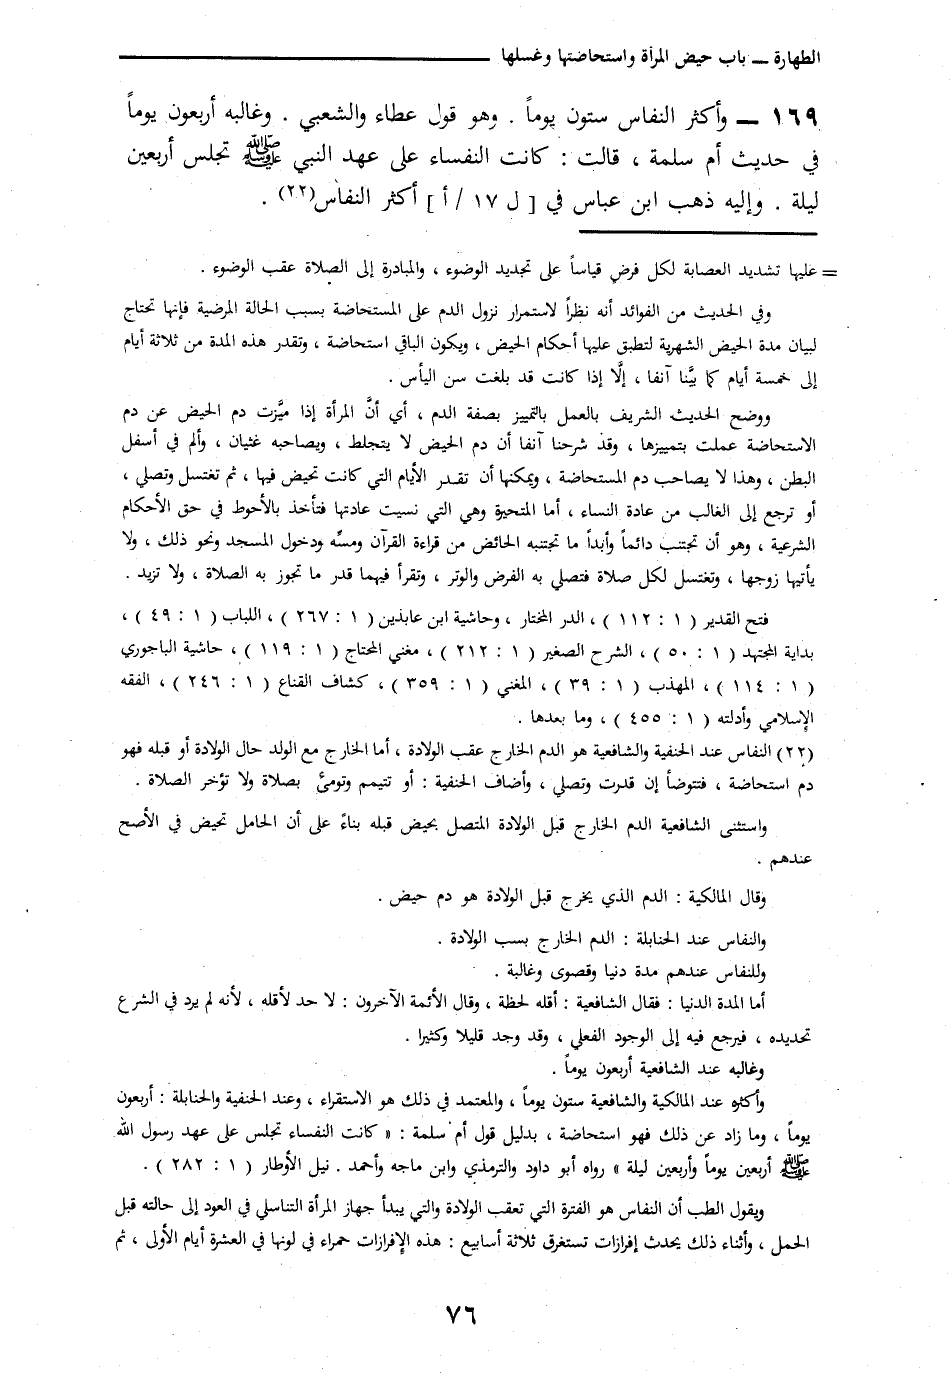 الطهارة ــ باب حيض المرأة واستحاضتها وغسلها
١٦٩ ــ وأكثر النفاس ستون يوماً . وهو قول عطاء والشعبي . وغالبه أربعون يوماً
في حديث أم سلمة ، قالت : كانت النفساء على عهد النبي ﷺ تجلس أربعين
ليلة . وإليه ذهب ابن عباس في [ ل ١٧ / أ ] أكثر النفاس(٢٢) .
= عليها تشديد العصابة لكل فرض قياساً على تجديد الوضوء ، والمبادرة إلى الصلاة عقب الوضوء .
وفي الحديث من الفوائد أنه نظراً لاستمرار نزول الدم على المستحاضة بسبب الحالة المرضية فإنها تحتاج
لبيان مدة الحيض الشهرية لتطبق عليها أحكام الحيض ، ويكون الباقي استحاضة ، وتقدر هذه المدة من ثلاثة أيام
إلى خمسة أيام كما بيَّنا آنفا ، إلَّا إذا كانت قد بلغت سن اليأس .
ووضح الحديث الشريف بالعمل بالتمييز بصفة الدم ، أي أنَّ المرأة إذا ميَّزت دم الحيض عن دم
الاستحاضة عملت بتمييزها ، وقد شرحنا آنفا أن دم الحيض لا يتجلط ، ويصاحبه غثيان ، وألم في أسفل
البطن ، وهذا لا يصاحب دم المستحاضة ، ويمكنها أن تقدر الأيام التي كانت تحيض فيها ، ثم تغتسل وتصلي ،
أو ترجع إلى الغالب من عادة النساء ، أما المتحيرة وهي التي نسيت عادتها فتأخذ بالأحوط في حق الأحكام
الشرعية ، وهو أن تجتنب دائماً وأبداً ما تجتنبه الحائض من قراءة القرآن ومسِّه ودخول المسجد ونحو ذلك ، ولا
يأتيها زوجها ، وتغتسل لكل صلاة فتصلي به الفرض والوتر ، وتقرأ فيهما قدر ما تجوز به الصلاة ، ولا تزيد .
فتح القدير ( ١ : ١١٢ ) ، الدر المختار ، وحاشية ابن عابدين ( ١ : ٢٦٧ ) ، اللباب ( ١ : ٤٩ ) ،
بداية المجتهد ( ١ : ٥٠ ) ، الشرح الصغير ( ١ : ٢١٢ ) ، مغني المحتاج ( ١ : ١١٩ ) ، حاشية الباجوري
( ١ : ١١٤ ) ، المهذب ( ١ : ٣٩ ) ، المغني ( ١ : ٣٥٩ ) ، كشاف القناع ( ١ : ٢٤٦ ) ، الفقه
الإسلامي وأدلته ( ١ : ٤٥٥ ) ، وما بعدها .
(٢٢) النفاس عند الحنفية والشافعية هو الدم الخارج عقب الولادة ، أما الخارج مع الولد حال الولادة أو قبله فهو
دم استحاضة ، فتتوضأ إن قدرت وتصلي ، وأضاف الحنفية : أو تتيمم وتومئ بصلاة ولا تؤخر الصلاة .
واستثنى الشافعية الدم الخارج قبل الولادة المتصل بحيض قبله بناءً على أن الحامل تحيض في الأصح
عندهم .
وقال المالكية : الدم الذي يخرج قبل الولادة هو دم حيض .
والنفاس عند الحنابلة : الدم الخارج بسب الولادة .
وللنفاس عندهم مدة دنيا وقصوى وغالبة .
أما المدة الدنيا : فقال الشافعية : أقله لحظة ، وقال الأئمة الآخرون : لا حد لأقله ، لأنه لم يرد في الشرع
تحديده ، فيرجع فيه إلى الوجود الفعلي ، وقد وجد قليلا وكثيرا .
وغالبه عند الشافعية أربعون يوماً .
وأكثره عند المالكية والشافعية ستون يوماً ، والمعتمد في ذلك هو الاستقراء ، وعند الحنفية والحنابلة : أربعون
يوماً ، وما زاد عن ذلك فهو استحاضة ، بدليل قول أم سلمة : « كانت النفساء تجلس على عهد رسول الله
ﷺ أربعين يوماً وأربعين ليلة » رواه أبو داود والترمذي وابن ماجه وأحمد . نيل الأوطار ( ١ : ٢٨٢ ) .
ويقول الطب أن النفاس هو الفترة التي تعقب الولادة والتي يبدأ جهاز المرأة التناسلي في العود إلى حالته قبل
الحمل ، وأثناء ذلك يحدث إفرازات تستغرق ثلاثة أسابيع : هذه الإفرازات حمراء في لونها في العشرة أيام الأولى ، ثم
٧٦